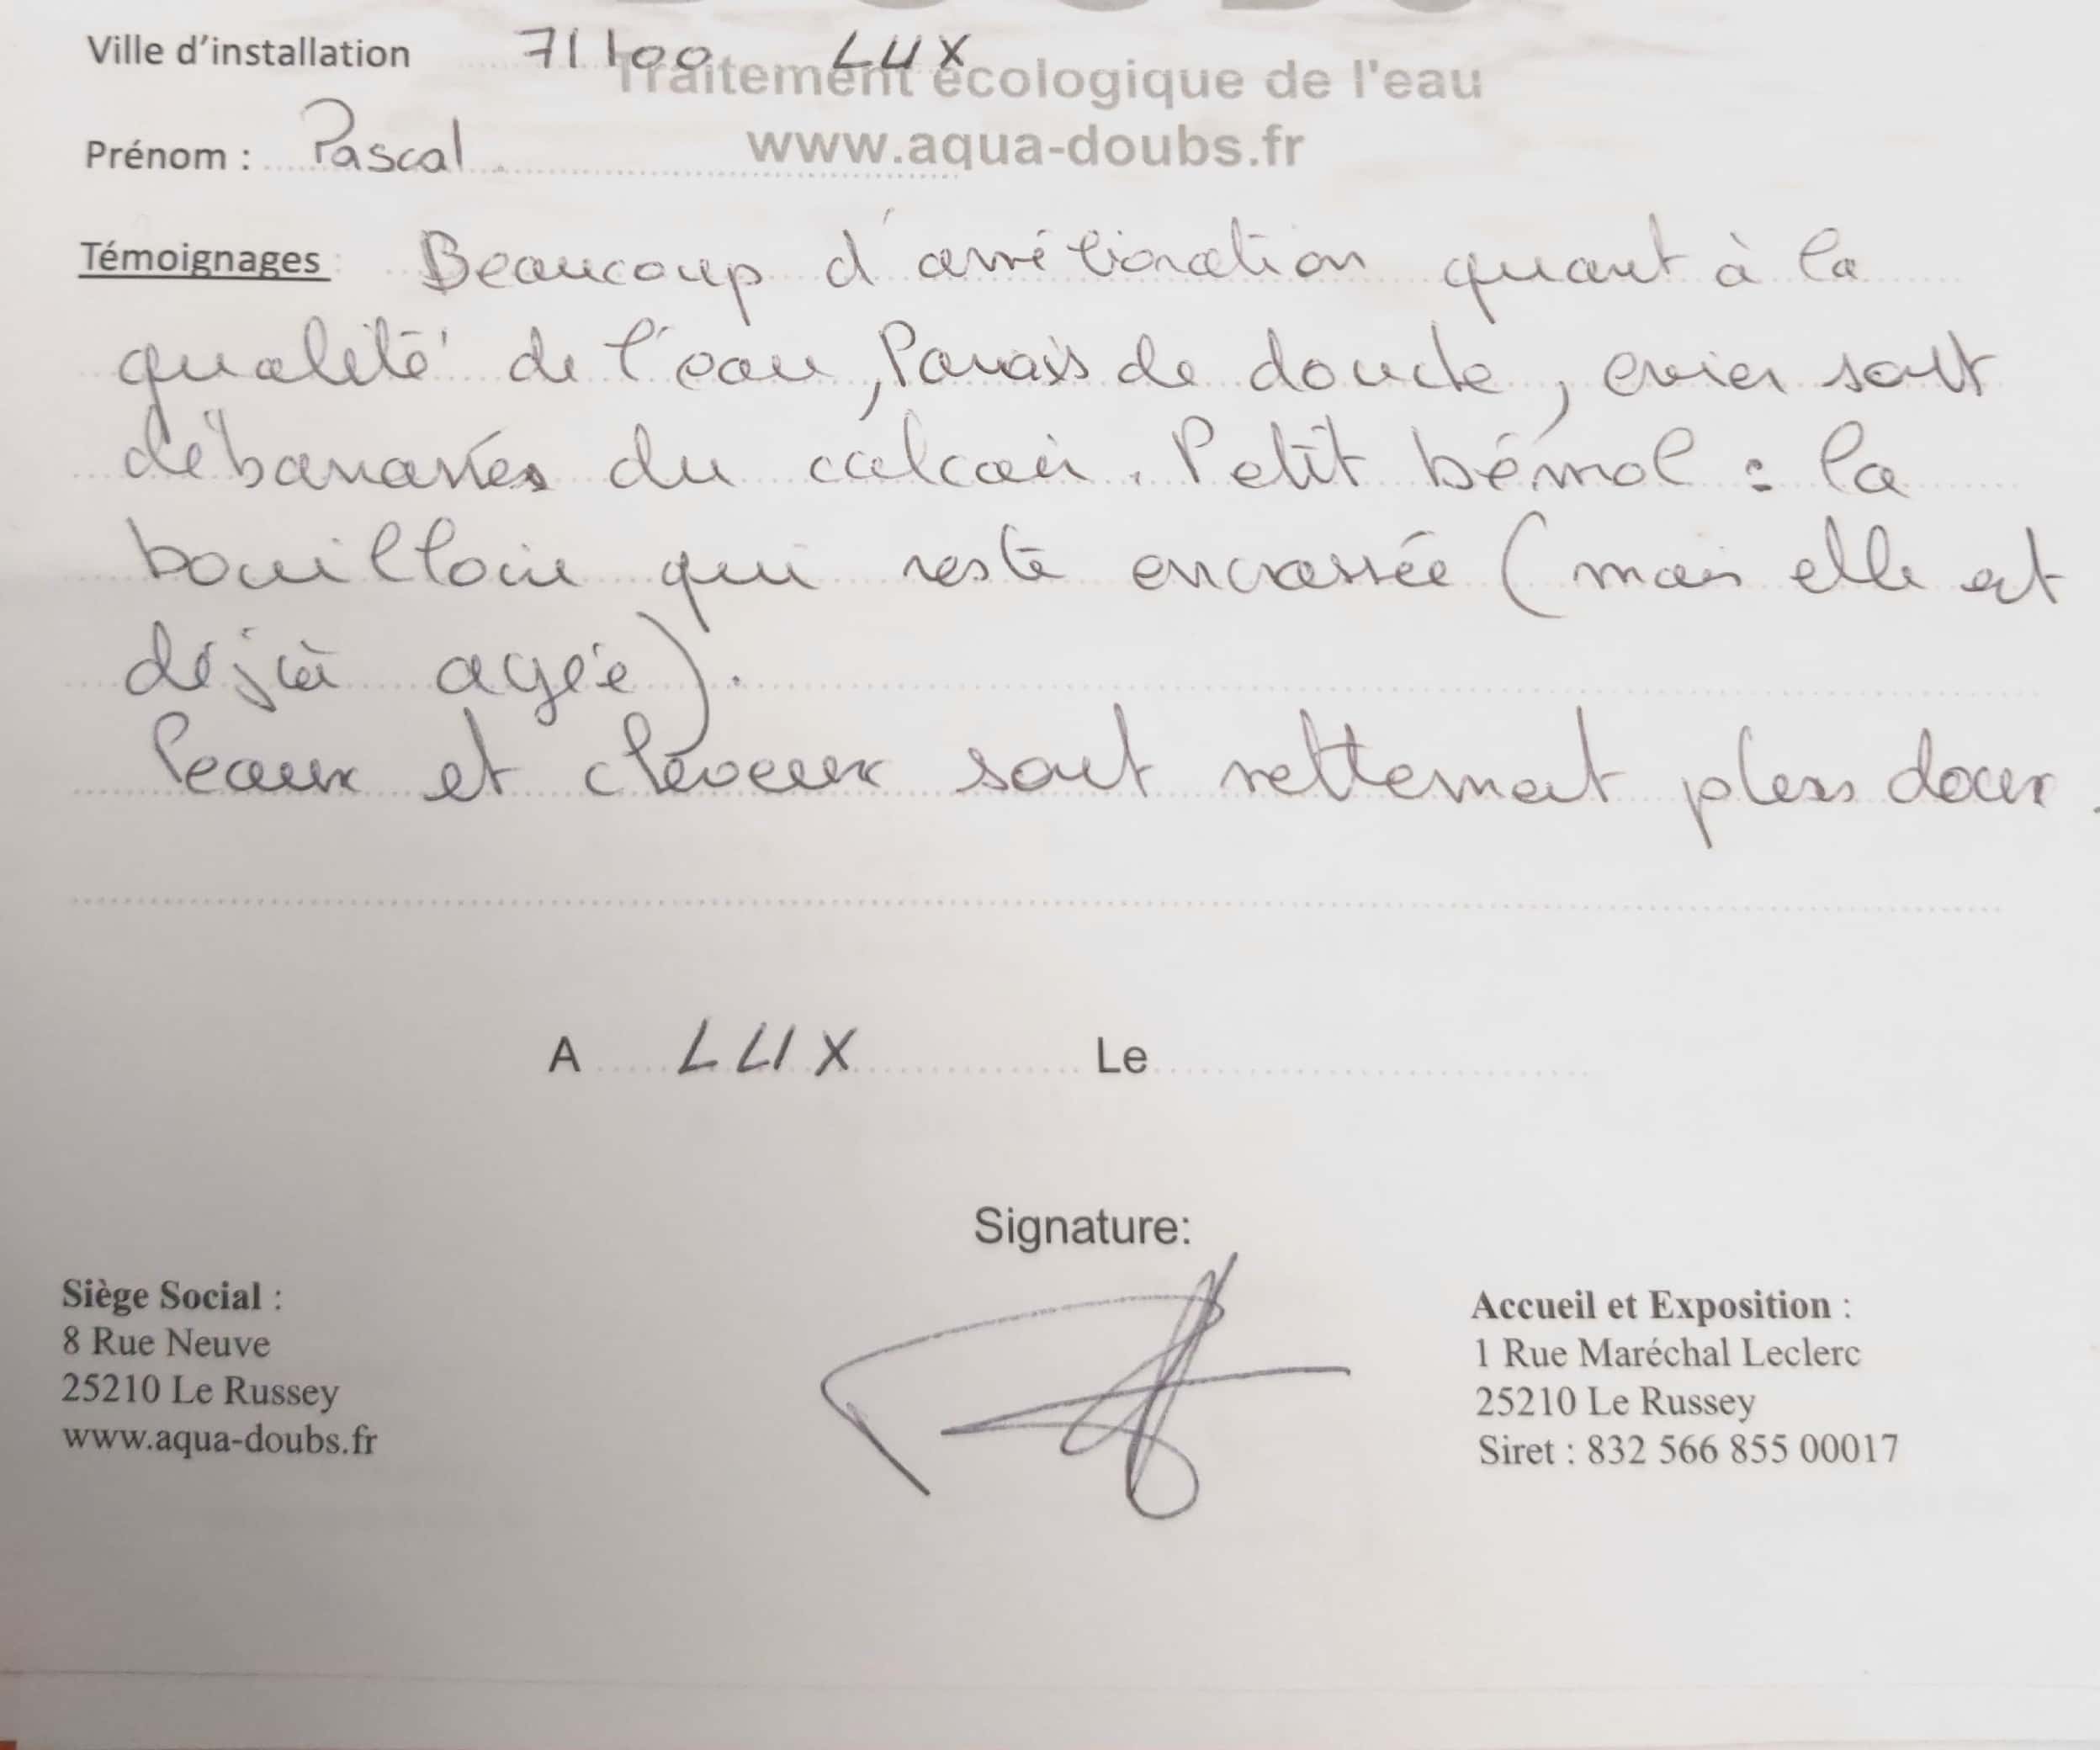 Ville d'installation 71100 LUX
Traitement écologique de l'eau
Prénom : Pascal
www.aqua-doubs.fr
Témoignages : Beaucoup d'amélioration quant à la
qualité de l'eau, Parois de douche, evier sont
débarrassés du calcaire. Petit bémol : la
bouilloire qui reste encrassée (mais elle est
déjà agée).
Peaux et cheveux sont nettement plus doux.
A LUX Le
Signature:
Siège Social :
8 Rue Neuve
25210 Le Russey
www.aqua-doubs.fr
Accueil et Exposition :
1 Rue Maréchal Leclerc
25210 Le Russey
Siret : 832 566 855 00017